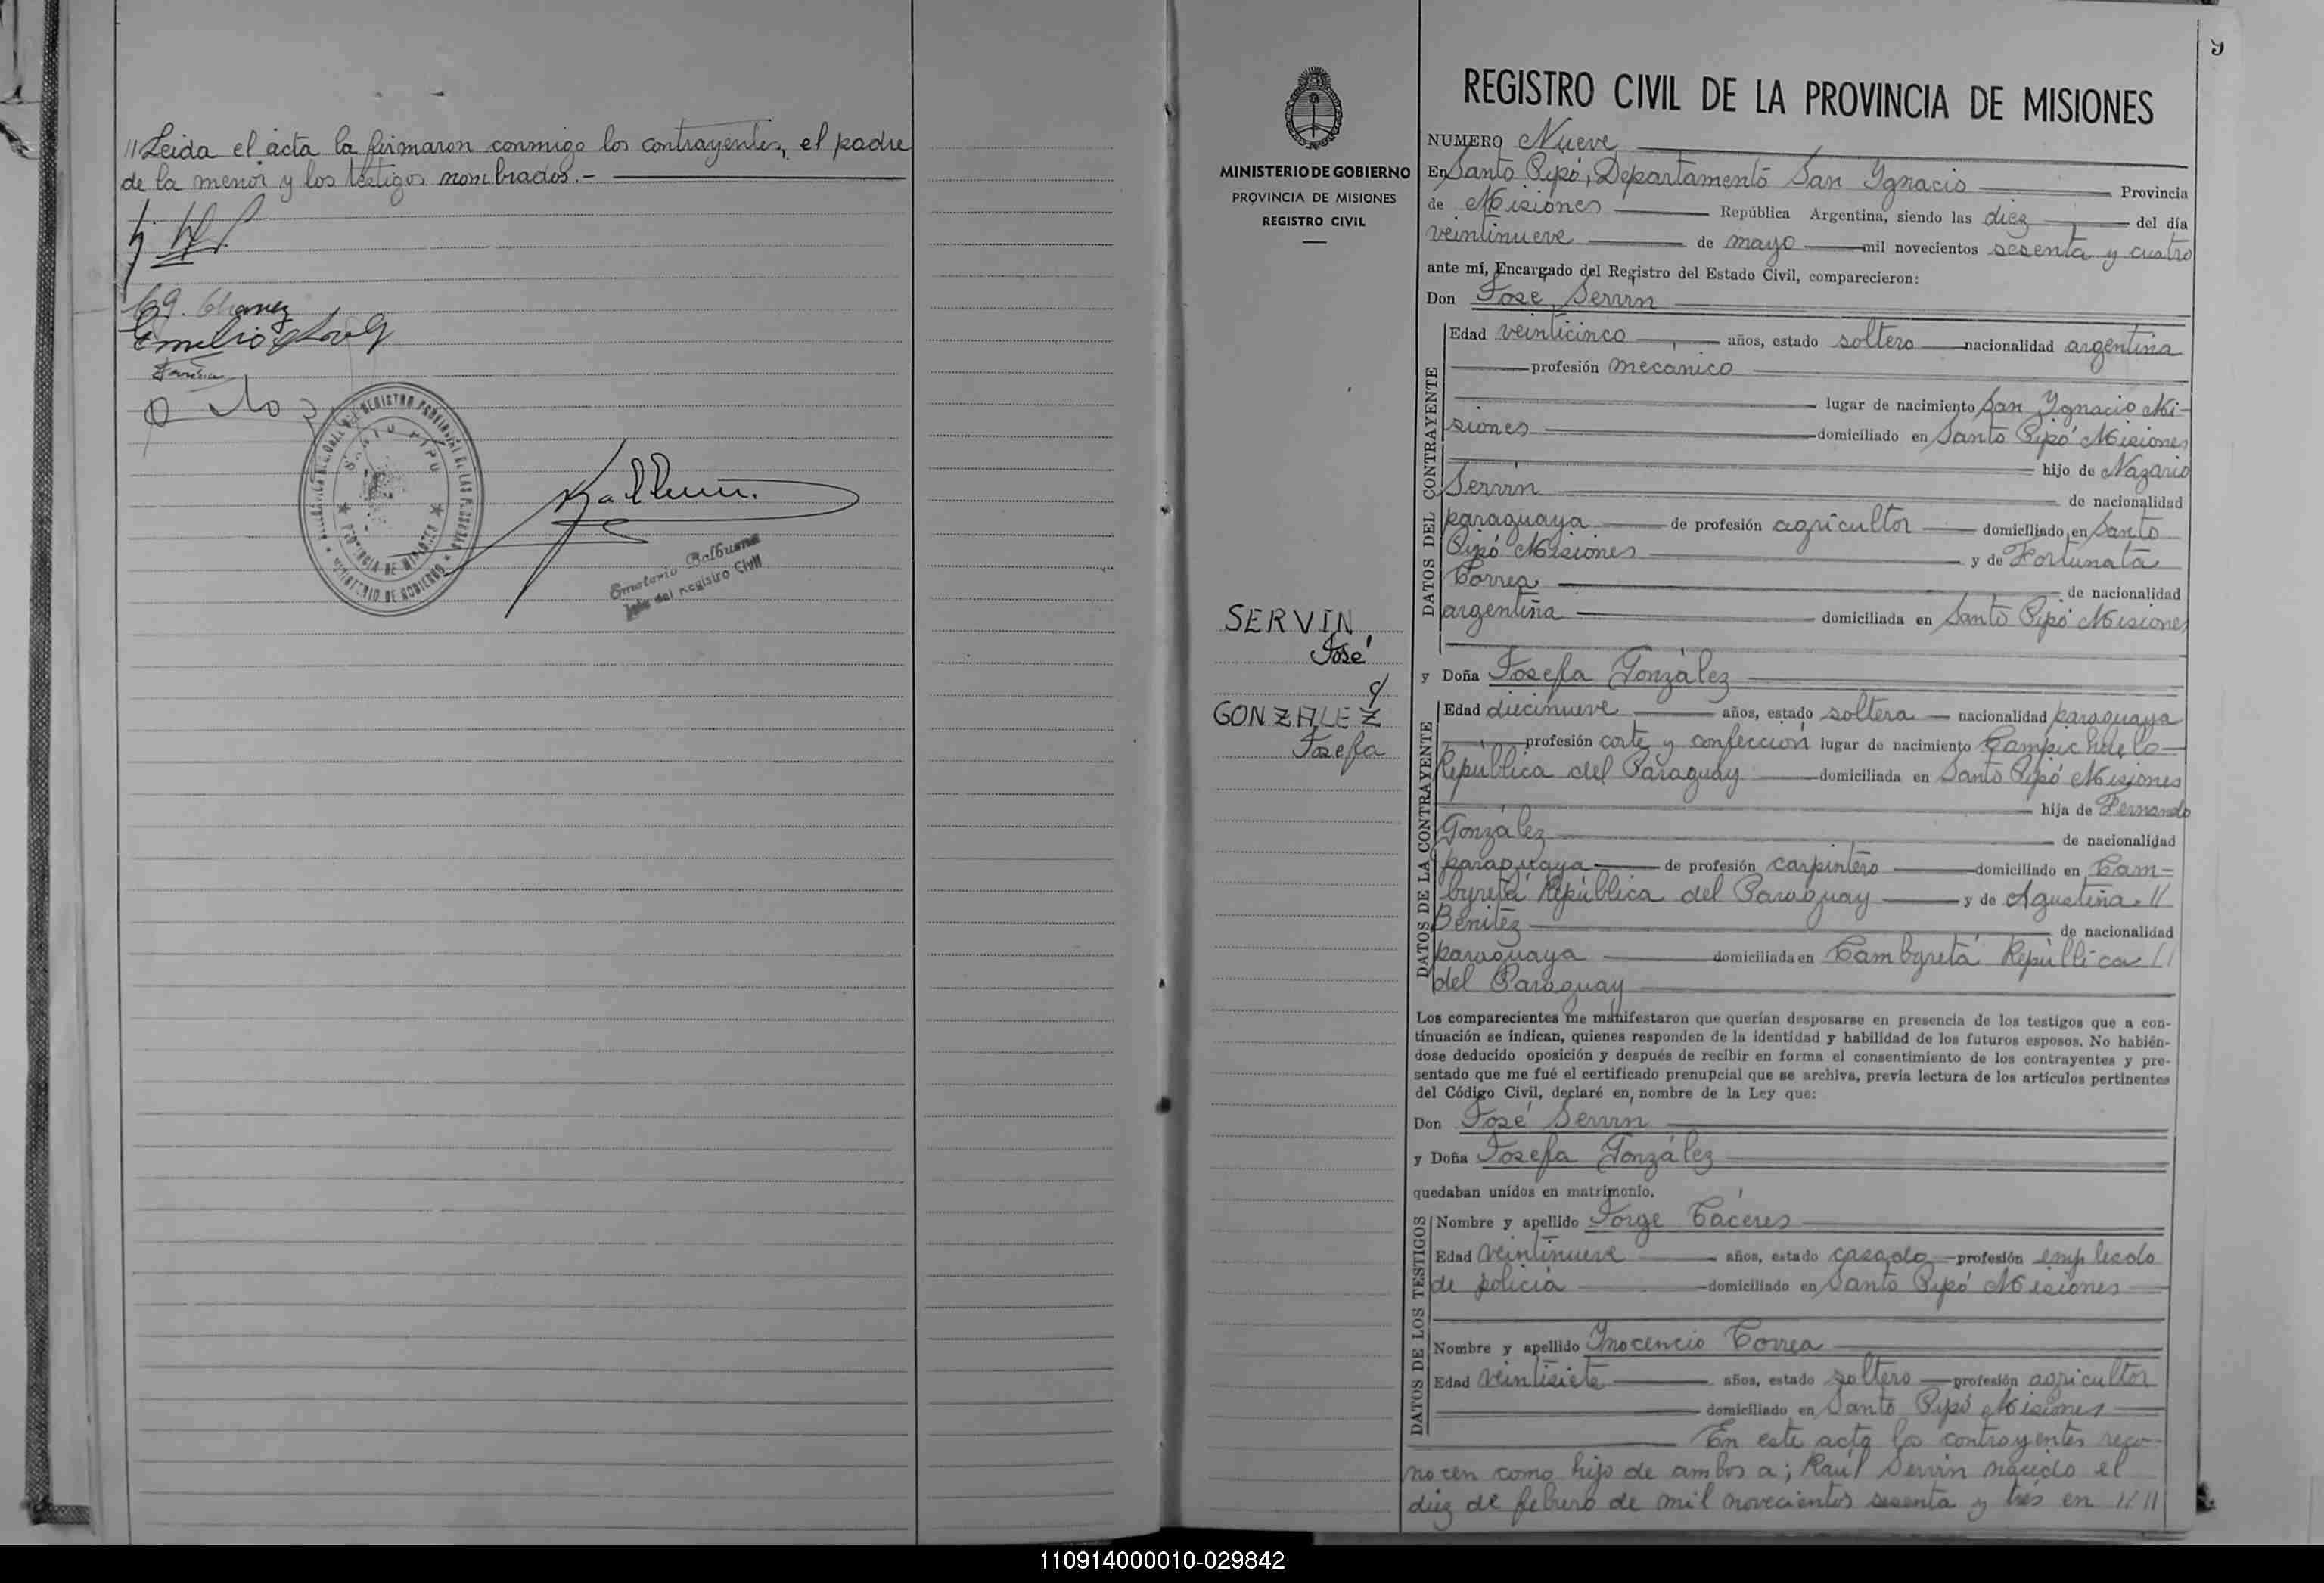 //Leida el acta la firmaron conmigo los contrayentes, el padre
de la menor y los testigos nombrados.-
Chavez
Emilio
SANTO PIPO
PROVINCIA DE MISIONES
MINISTERIO DE GOBIERNO
Emeterio Balbuena
Jefe del Registro Civil
9
MINISTERIO DE GOBIERNO
PROVINCIA DE MISIONES
REGISTRO CIVIL
SERVIN
José
y
GONZALEZ
Josefa
REGISTRO CIVIL DE LA PROVINCIA DE MISIONES
NUMERO Nueve
En Santo Pipó, Departamento San Ygnacio Provincia
de Misiones República Argentina, siendo las diez del día
veintinueve de mayo mil novecientos sesenta y cuatro
ante mí, Encargado del Registro del Estado Civil, comparecieron:
Don José Servin
DATOS DEL CONTRAYENTE
Edad veinticinco años, estado soltero nacionalidad argentina
profesión mecanico
lugar de nacimiento San Ygnacio Mi-
siones domiciliado en Santo Pipó Misiones
hijo de Nazario
Servin de nacionalidad
paraguaya de profesión agricultor domiciliado en Santo
Pipó Misiones y de Fortunata
Correa de nacionalidad
argentina domiciliada en Santo Pipó Misiones
y Doña Josefa González
DATOS DE LA CONTRAYENTE
Edad diecinueve años, estado soltera nacionalidad paraguaya
profesión corte y confección lugar de nacimiento Campichuelo
República del Paraguay domiciliada en Santo Pipó Misiones
hija de Fernando
González de nacionalidad
paraguaya de profesión carpintero domiciliado en Cam-
byretá República del Paraguay y de Agustina //
Benitez de nacionalidad
paraguaya domiciliada en Cambyretá República //
del Paraguay
Los comparecientes me manifestaron que querían desposarse en presencia de los testigos que a con-
tinuación se indican, quienes responden de la identidad y habilidad de los futuros esposos. No habién-
dose deducido oposición y después de recibir en forma el consentimiento de los contrayentes y pre-
sentado que me fué el certificado prenupcial que se archiva, previa lectura de los artículos pertinentes
del Código Civil, declaré en nombre de la Ley que:
Don José Servin
y Doña Josefa González
quedaban unidos en matrimonio.
DATOS DE LOS TESTIGOS
Nombre y apellido Jorge Cáceres
Edad veintinueve años, estado casado profesión empleado
de policia domiciliado en Santo Pipó Misiones
Nombre y apellido Inocencio Correa
Edad veintisiete años, estado soltero profesión agricultor
domiciliado en Santo Pipó Misiones
En este acto los contrayentes reco-
nocen como hijo de ambos a; Raúl Servin nacido el
diez de febrero de mil novecientos sesenta y tres en ////
110914000010-029842